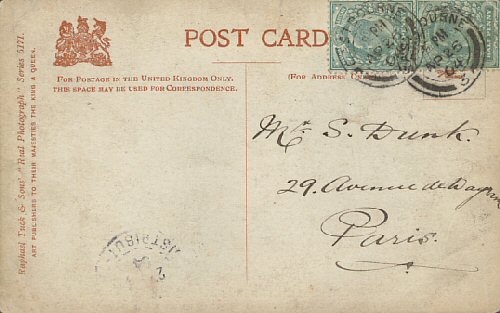 POST CARD
FOR POSTAGE IN THE UNITED KINGDOM ONLY,
THIS SPACE MAY BE USED FOR CORRESPONDENCE.
(FOR ADDRESS
Raphael Tuck & Sons' "Real Photograph" Series 5171.
ART PUBLISHERS TO THEIR MAJESTIES THE KING & QUEEN.
Mr S. Dunk.
29. Avenue de Wagram
Paris.